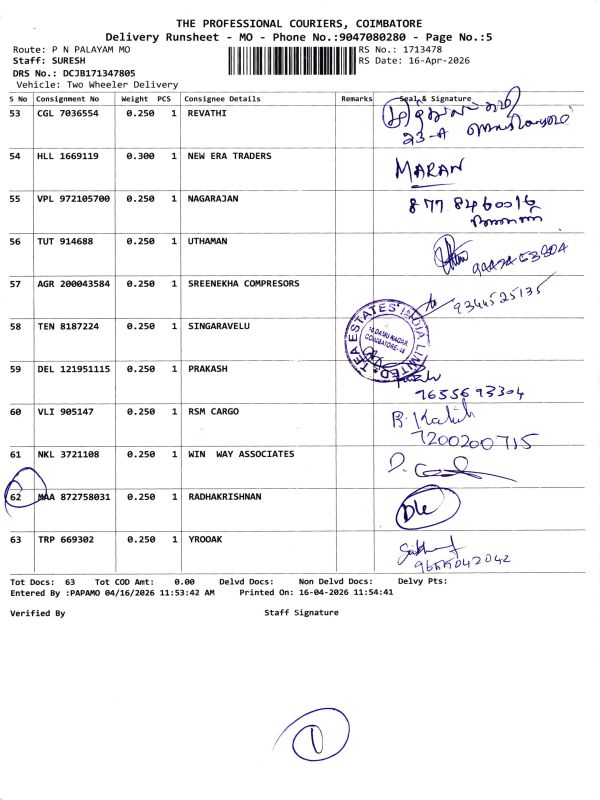 THE PROFESSIONAL COURIERS, COIMBATORE
Delivery Runsheet - MO - Phone No.:9047080280 - Page No.:5
Route: P N PALAYAM MO RS No.: 1713478
Staff: SURESH RS Date: 16-Apr-2026
DRS No.: DCJB171347805
Vehicle: Two Wheeler Delivery
S No Consignment No Weight PCS Consignee Details Remarks Seal & Signature
53 CGL 7036554 0.250 1 REVATHI
23-A
54 HLL 1669119 0.300 1 NEW ERA TRADERS MARAN
55 VPL 972105700 0.250 1 NAGARAJAN 877 8460016
56 TUT 914688 0.250 1 UTHAMAN
57 AGR 200043584 0.250 1 SREENEKHA COMPRESORS 9344525135
58 TEN 8187224 0.250 1 SINGARAVELU TEA ESTATES INDIA LIMITED COIMBATORE
59 DEL 121951115 0.250 1 PRAKASH
7655693304
60 VLI 905147 0.250 1 RSM CARGO
7200200715
61 NKL 3721108 0.250 1 WIN WAY ASSOCIATES
62 MAA 872758031 0.250 1 RADHAKRISHNAN
63 TRP 669302 0.250 1 YROOAK
9655042042
Tot Docs: 63 Tot COD Amt: 0.00 Delvd Docs: Non Delvd Docs: Delvy Pts:
Entered By :PAPAMO 04/16/2026 11:53:42 AM Printed On: 16-04-2026 11:54:41
Verified By Staff Signature
1